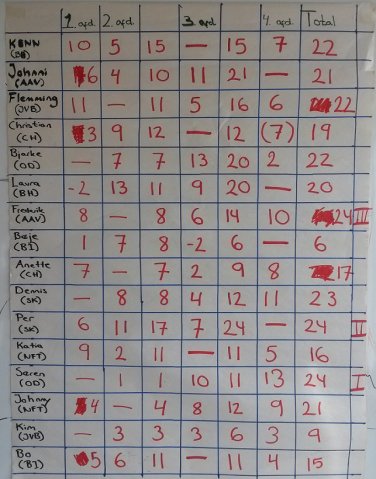 1. afd. 2. afd. 3. afd. 4. afd. Total
KENN 10 5 15 — 15 7 22
Johnni 6 4 10 11 21 — 21
(AAV)
Flemming 11 — 11 5 16 6 22
(JVB)
Christian 3 9 12 — 12 (7) 19
(CH)
Bjarke — 7 7 13 20 2 22
(OD)
Laura -2 13 11 9 20 — 20
(BH)
Frederik 8 — 8 6 14 10 24 III
(AAV)
Børje 1 7 8 -2 6 — 6
(BI)
Anette 7 — 7 2 9 8 17
(CH)
Dennis — 8 8 4 12 11 23
(SK)
Per 6 11 17 7 24 — 24 II
(SK)
Katia 9 2 11 — 11 5 16
(NFT)
Søren — 1 1 10 11 13 24 I
(OD)
Johnny 4 — 4 8 12 9 21
(NFT)
Kim — 3 3 3 6 3 9
(JVB)
Bo 5 6 11 — 11 4 15
(BI)